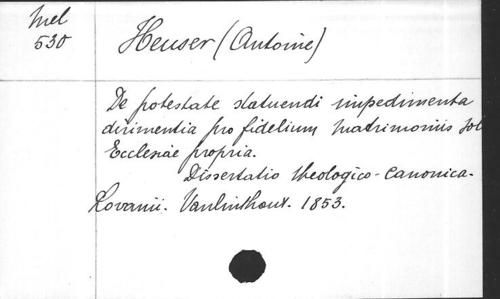 Mel
530
Heuser (Antoine)
De potestate statuendi impedimenta
dirimentia pro fidelium matrimoniis soli
Ecclesiae propria.
Dissertatio theologico-canonica.
Lovanii. Vanlinthout. 1853.